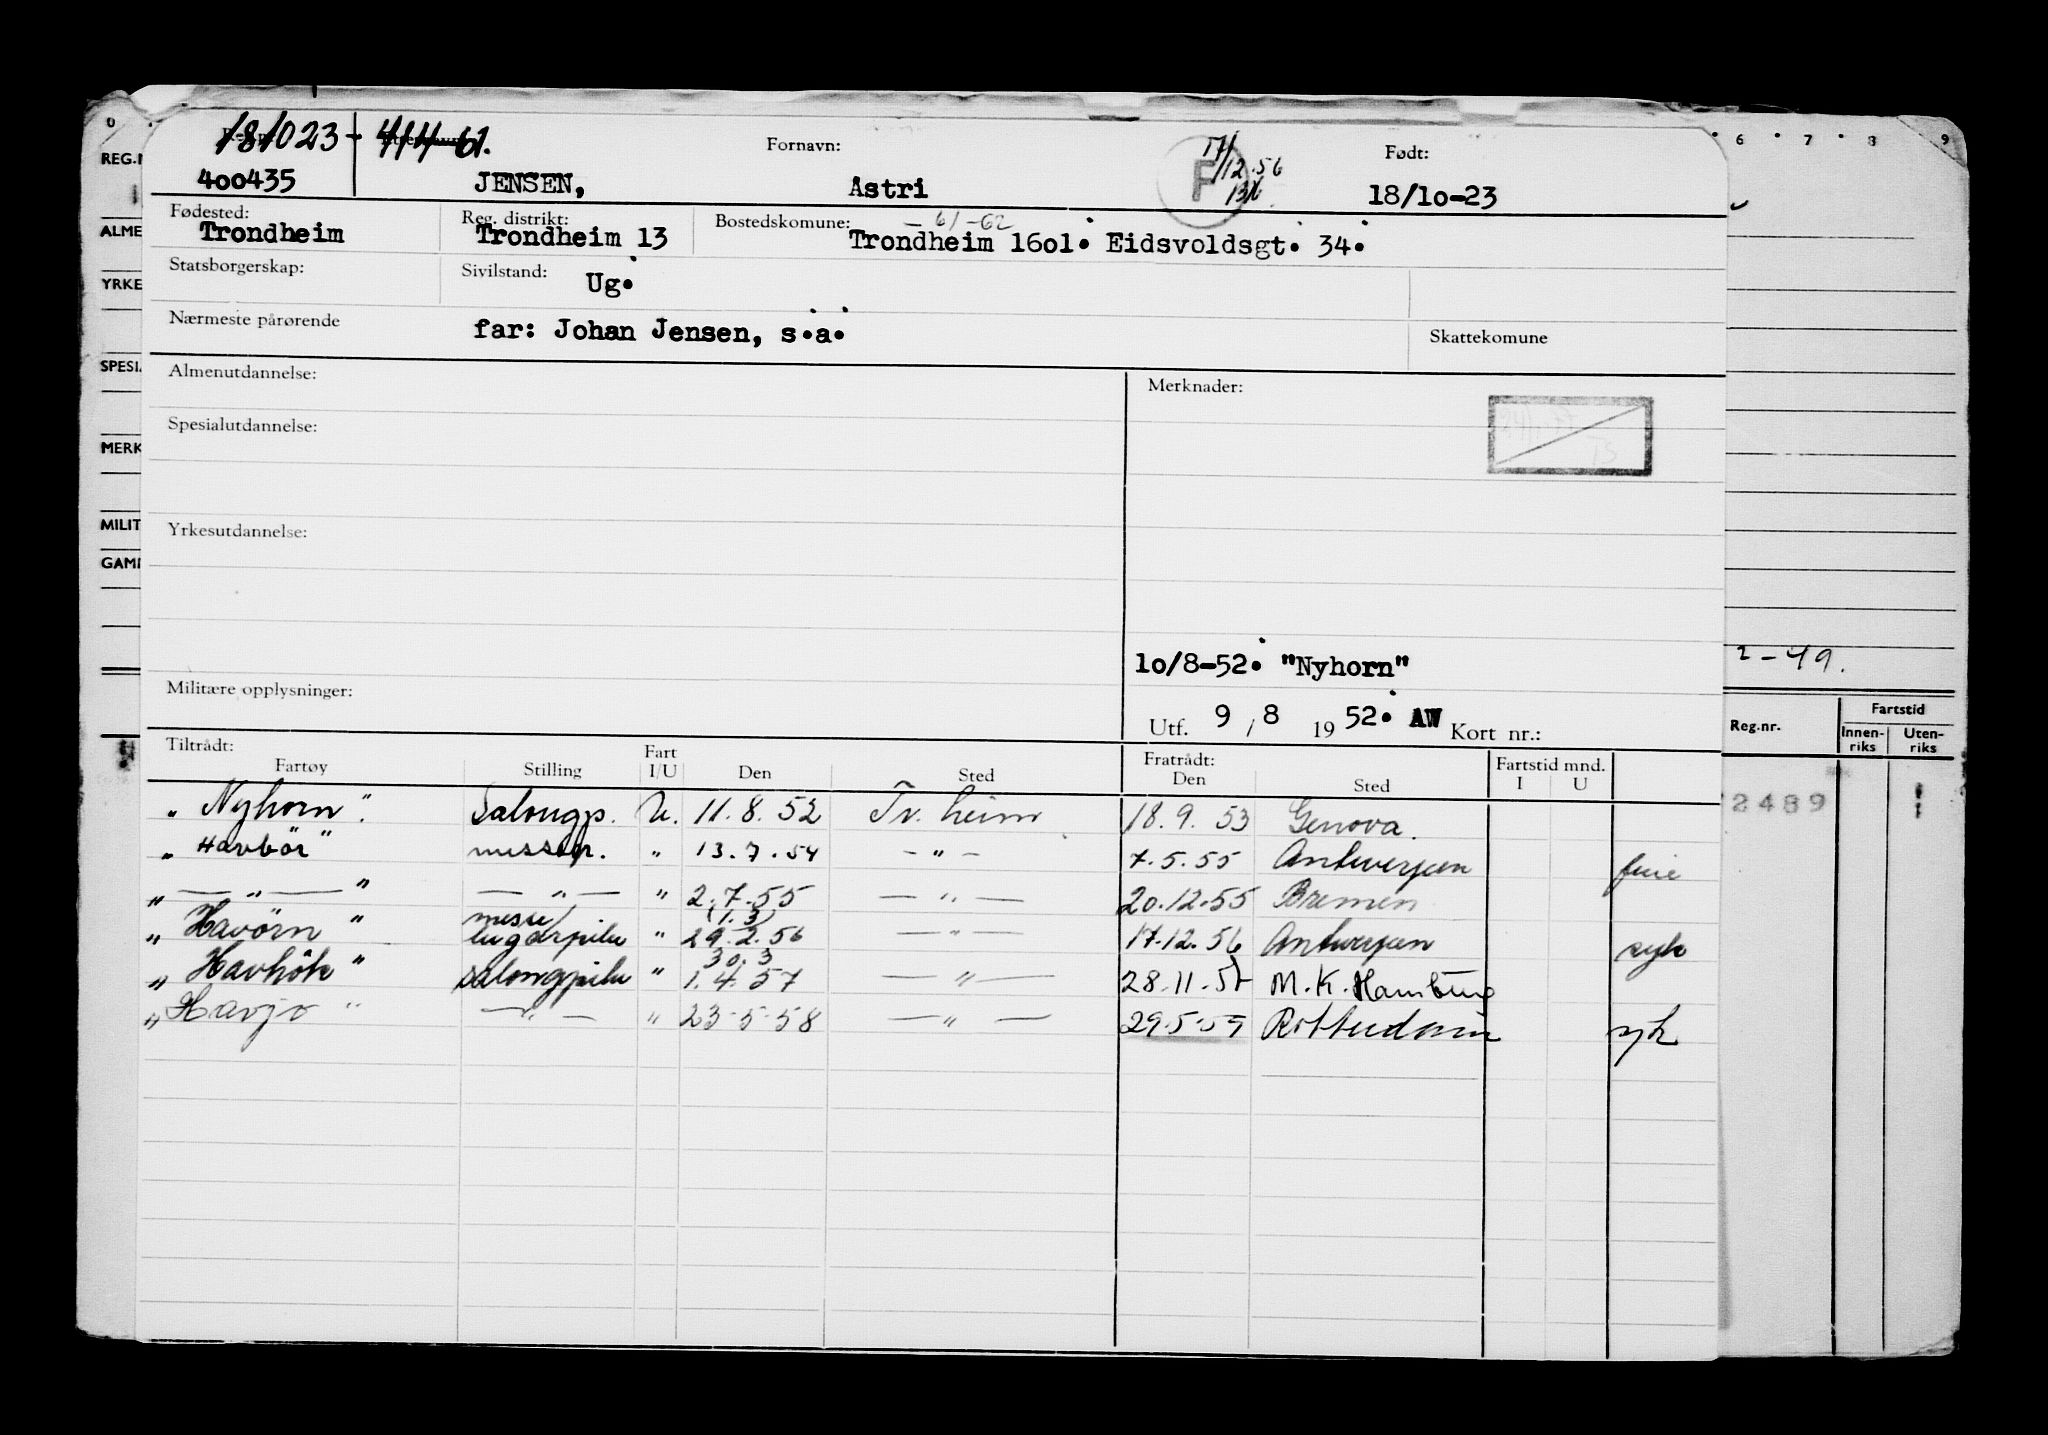 181023 - 41461.
400435 JENSEN, Fornavn: Astri F 17/12.56 Født: 18/10-23
Fødested: Trondheim Reg. distrikt: Trondheim 13 Bostedskomune: - 61-62 Trondheim 1601. Eidsvoldsgt. 34.
Statsborgerskap: Sivilstand: Ug.
Nærmeste pårørende far: Johan Jensen, s.a. Skattekomune
Almenutdannelse: Merknader:
Spesialutdannelse:
Yrkesutdannelse:
10/8-52. "Nyhorn"
Militære opplysninger:
Utf. 9/8 1952. AW Kort nr.:
Tiltrådt: Fartøy Stilling Fart I/U Den Sted Fratrådt: Den Sted Fartstid mnd. I U
"Nyhorn" Salongp. U. 11.8.52 Tr.heim 18.9.53 Genova.
"Havbör" messep. " 13.7.54 - " - 7.5.55 Antwerpen ferie
" — " — " — " — " 2.7.55 — " — 20.12.55 Bremen
"Havörn" messe/lugarpike " (1.3) 29.2.56 — " — 17.12.56 Antwerpen syk
"Havhök" salongpike " 30.3 1.4.57 — " — 28.11.57 M.K. Hamburg
"Havjo" — " — " 23-5-58 — " — 29.5.59 Rotterdam syk
REG.N
ALME
YRKE
SPESI
MERK
MILIT
GAM
0 6 7 8 9
2-49.
Reg.nr. Fartstid Innenriks Utenriks
2489